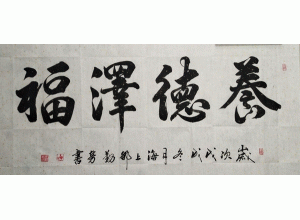 養德澤福
歲次戊戌冬月海上鄒勤勞書